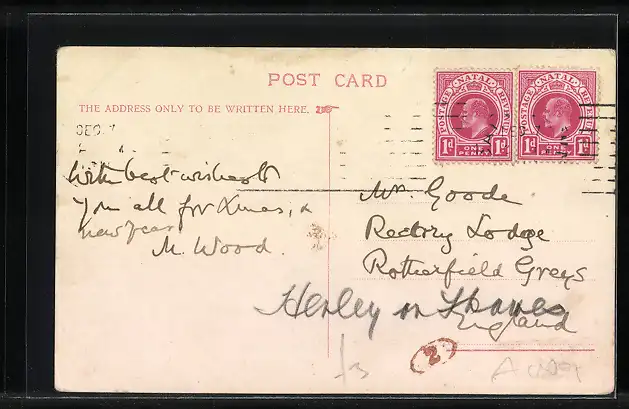 POST CARD
THE ADDRESS ONLY TO BE WRITTEN HERE.
POSTAGE NATAL REVENUE
1d ONE PENNY 1d
POSTAGE NATAL REVENUE
1d ONE 1d
DEC 7
With best wishes to
you all for Xmas, &
new year
M. Wood.
Mr. Goode
Rectory Lodge
Rotherfield Greys
Henley on Thames
England
2